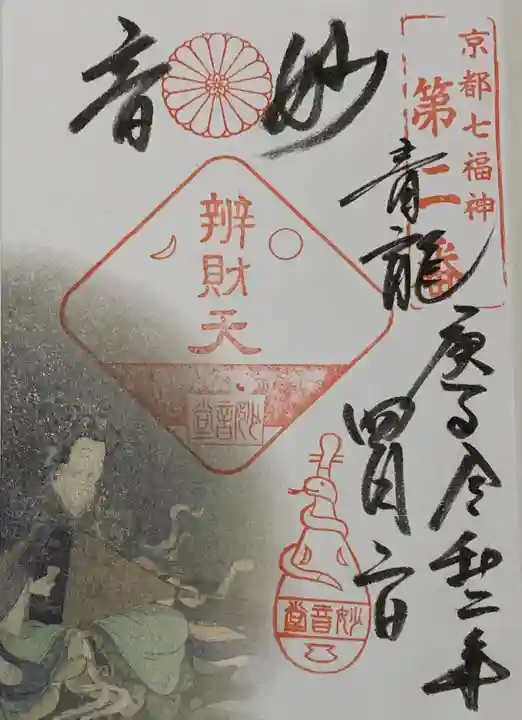 京都七福神
第二番
妙音
青龍
庚子令和二年
四月
辨財天
妙音堂
妙音堂